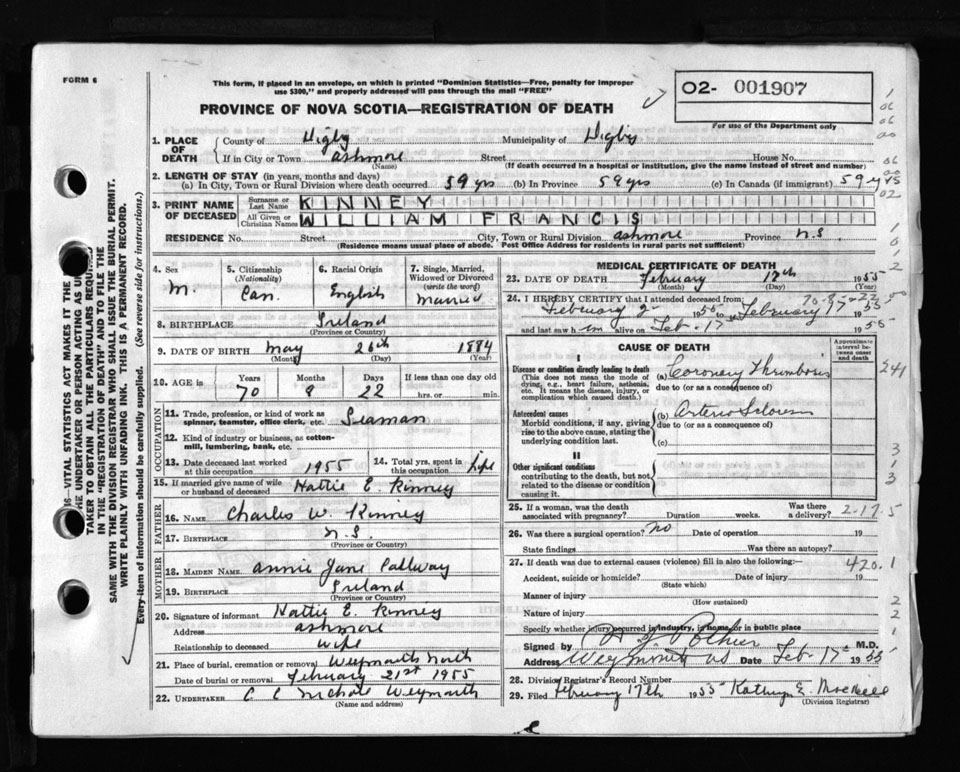 FORM 6
This form, if placed in an envelope, on which is printed "Dominion Statistics—Free, penalty for improper
use $300," and properly addressed will pass through the mail "FREE"
PROVINCE OF NOVA SCOTIA—REGISTRATION OF DEATH
02- 001907
For use of the Department only
1. PLACE OF DEATH County of Digby Municipality of Digby
If in City or Town Ashmore Street House No.
(Name) (If death occurred in a hospital or institution, give the name instead of street and number)
2. LENGTH OF STAY (in years, months and days)
(a) In City, Town or Rural Division where death occurred 59 yrs (b) In Province 59 yrs (c) In Canada (if immigrant) 59 yrs
3. PRINT NAME OF DECEASED Surname or Last Name KINNEY
All Given or Christian Names WILLIAM FRANCIS
RESIDENCE No. Street City, Town or Rural Division Ashmore Province N.S.
(Residence means usual place of abode. Post Office Address for residents in rural parts not sufficient)
4. Sex M.
5. Citizenship (Nationality) Can.
6. Racial Origin English
7. Single, Married, Widowed or Divorced (write the word) Married
8. BIRTHPLACE Ireland
(Province or Country)
9. DATE OF BIRTH May 26th 1884
(Month) (Day) (Year)
10. AGE is Years 70 Months 8 Days 22 If less than one day old hrs. or min.
OCCUPATION
11. Trade, profession, or kind of work as spinner, teamster, office clerk, etc. Seaman
12. Kind of industry or business, as cotton-mill, lumbering, bank, etc.
13. Date deceased last worked at this occupation 1955
14. Total yrs. spent in this occupation Life
15. If married give name of wife or husband of deceased Hattie E. Kinney
FATHER
16. NAME Charles W. Kinney
17. BIRTHPLACE N.S.
(Province or Country)
MOTHER
18. MAIDEN NAME Annie Jane
19. BIRTHPLACE Ireland
(Province or Country)
20. Signature of informant Hattie E. Kinney
Address Ashmore
Relationship to deceased Wife
21. Place of burial, cremation or removal Weymouth North
Date of burial or removal February 21st 1955
22. UNDERTAKER C C Nichols Weymouth
(Name and address)
MEDICAL CERTIFICATE OF DEATH
23. DATE OF DEATH February 17th 1955
(Month) (Day) (Year)
24. I HEREBY CERTIFY that I attended deceased from:
February 2 1955 to February 17 1955
and last saw him alive on Feb. 17 1955
CAUSE OF DEATH
Approximate interval between onset and death
I
Disease or condition directly leading to death
(This does not mean the mode of dying, e.g., heart failure, asthenia, etc. It means the disease, injury, or complication which caused death.)
(a) Coronary Thrombosis
due to (or as a consequence of)
Antecedent causes
Morbid conditions, if any, giving rise to the above cause, stating the underlying condition last.
(b) Arterio Sclerosis
due to (or as a consequence of)
(c)
II
Other significant conditions
contributing to the death, but not related to the disease or condition causing it.
25. If a woman, was the death associated with pregnancy? Duration weeks. Was there a delivery?
2-17-5
26. Was there a surgical operation? No Date of operation 19
State findings Was there an autopsy?
27. If death was due to external causes (violence) fill in also the following:—
420.1
Accident, suicide or homicide? Date of injury 19
(State which)
Manner of injury
(How sustained)
Nature of injury
Specify whether injury occurred in industry, in home, or in public place
Signed by Pothier M.D.
Address Weymouth NS Date Feb. 17 1955
28. Division Registrar's Record Number
29. Filed February 17th 1955 Kathryn E.
(Division Registrar)
241
SAME WITH THE DIVISION REGISTRAR WHO SHALL ISSUE THE BURIAL PERMIT.
WRITE PLAINLY WITH UNFADING INK. THIS IS A PERMANENT RECORD.
Every item of information should be carefully supplied. (See reverse side for instructions.)